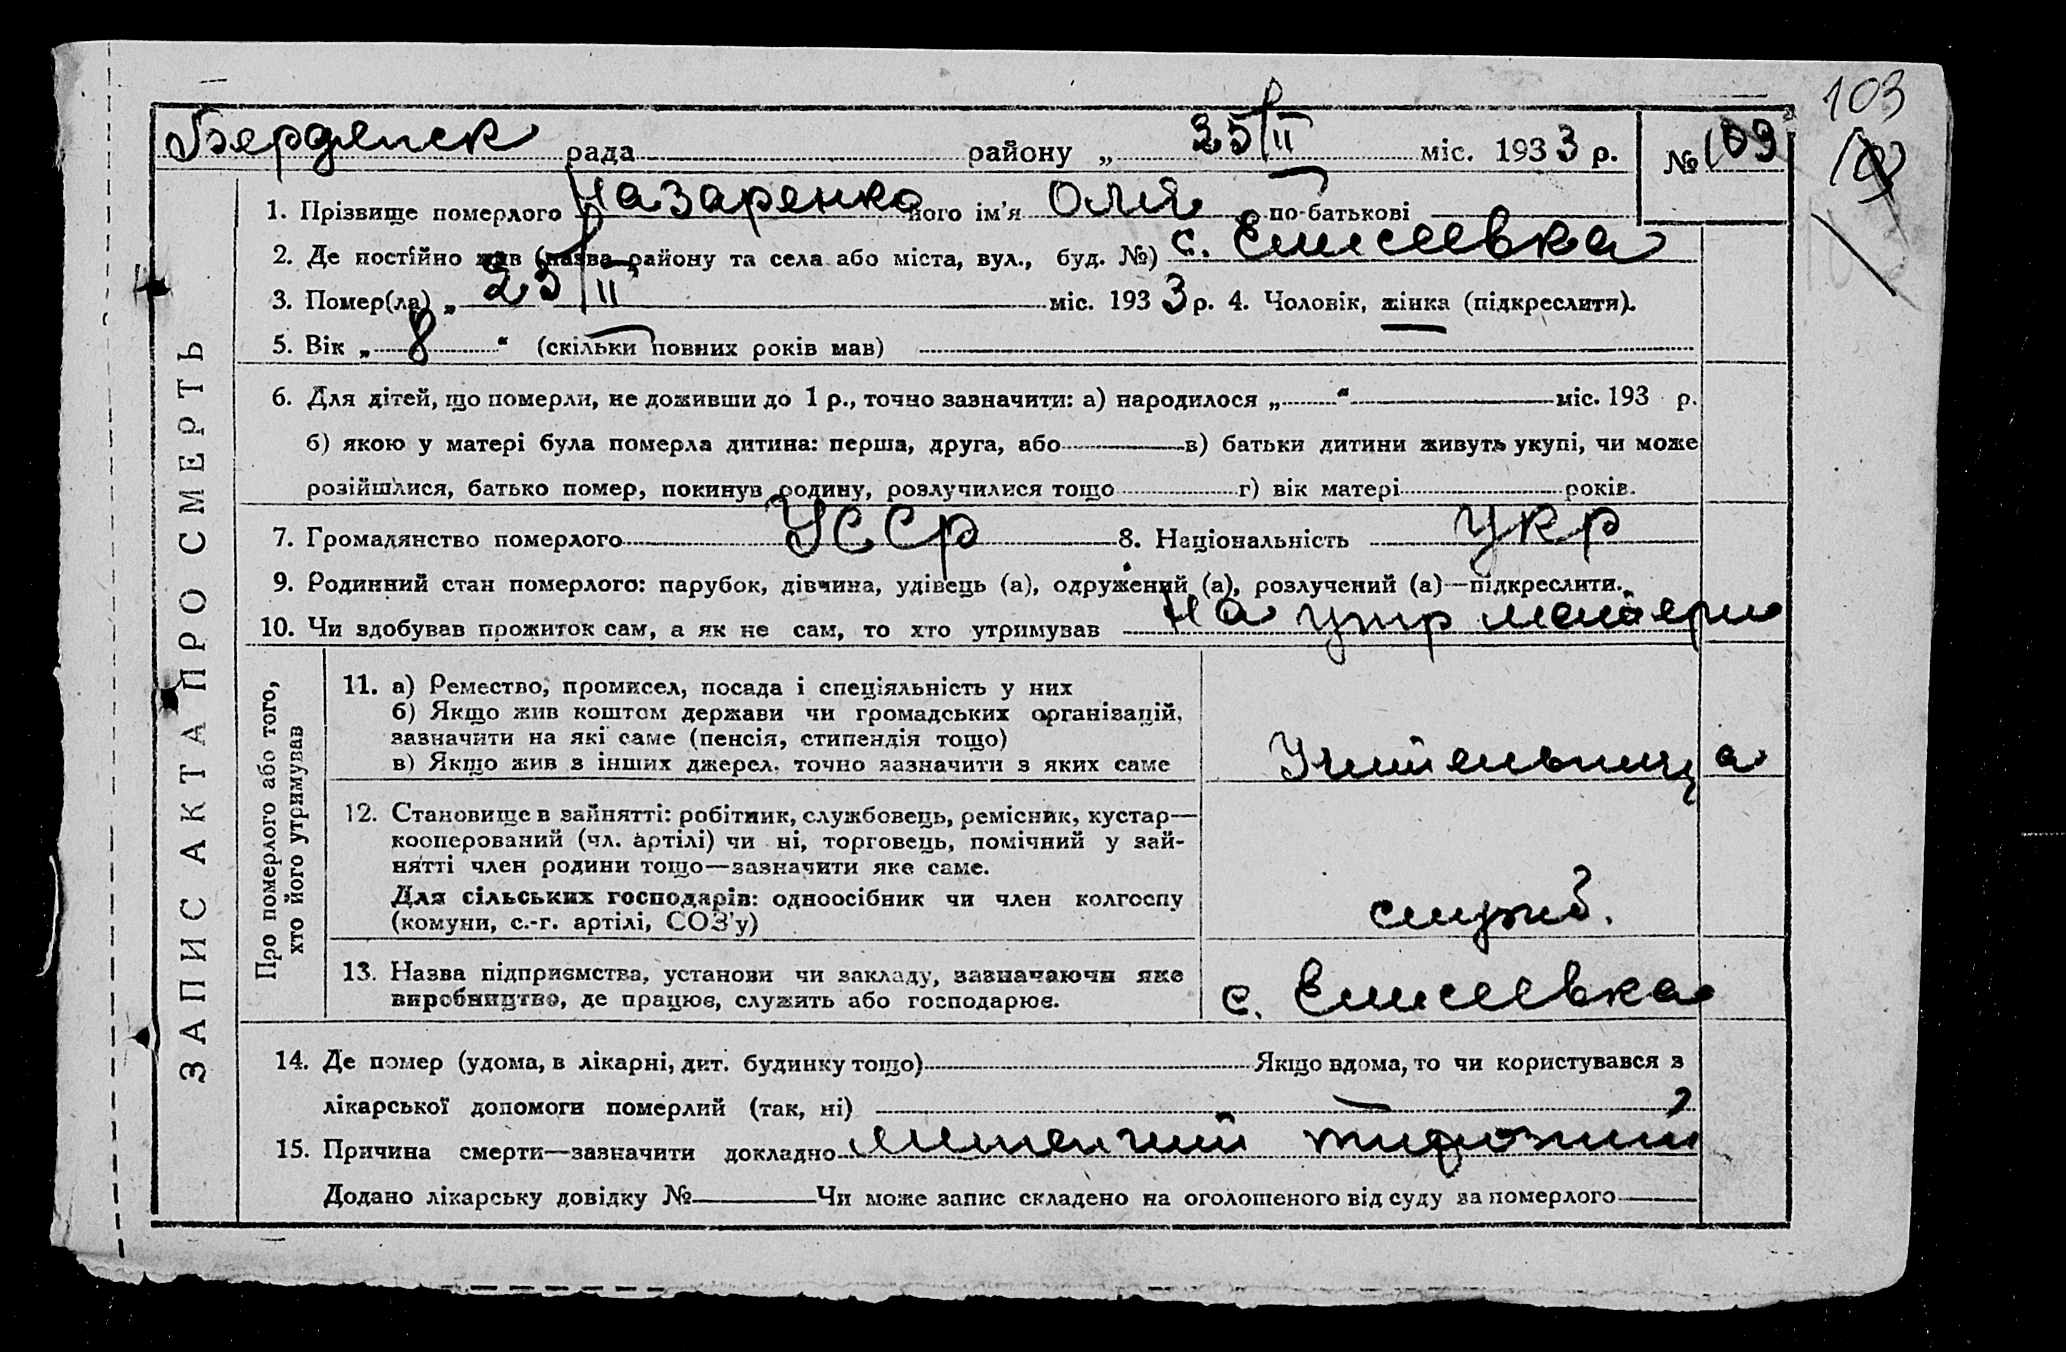 103
Бердянск рада району „ 25/II міс. 1933 р. № 103
ЗАПИС АКТА ПРО СМЕРТЬ
1. Прізвище померлого Назаренко його ім'я Оля по-батькові
2. Де постійно жив (назва району та села або міста, вул., буд. №) с. Елисеевка
3. Помер(ла) „ 25/II міс. 1933 р. 4. Чоловік, жінка (підкреслити).
5. Вік „ 8 “ (скільки повних років мав)
6. Для дітей, що померли, не доживши до 1 р., точно зазначити: а) народилося „ “ міс. 193 р.
б) якою у матері була померла дитина: перша, друга, або в) батьки дитини живуть укупі, чи може
розійшлися, батько помер, покинув родину, розлучилися тощо г) вік матері років.
7. Громадянство померлого УССр 8. Національність укр
9. Родинний стан померлого: парубок, дівчина, удівець (а), одружений (а), розлучений (а)—підкреслити.
10. Чи здобував прожиток сам, а як не сам, то хто утримував на упр матери
Про померлого або того,
хто його утримував
11. а) Ремество, промисел, посада і спеціяльність у них
б) Якщо жив коштом держави чи громадських організацій,
зазначити на які саме (пенсія, стипендія тощо)
в) Якщо жив з інших джерел, точно зазначити з яких саме
Учительница
12. Становище в зайнятті: робітник, службовець, ремісник, кустар—
кооперований (чл. артілі) чи ні, торговець, помічний у зай-
нятті член родини тощо—зазначити яке саме.
Для сільських господарів: одноосібник чи член колгоспу
(комуни, с.-г. артілі, СОЗ'у)
служб.
13. Назва підприємства, установи чи закладу, зазначаючи яке
виробництво, де працює, служить або господарює.
с. Елисеевка
14. Де помер (удома, в лікарні, дит. будинку тощо) Якщо вдома, то чи користувався з
лікарської допомоги померлий (так, ні)
15. Причина смерти—зазначити докладно
Додано лікарську довідку № Чи може запис складено на оголошеного від суду за померлого